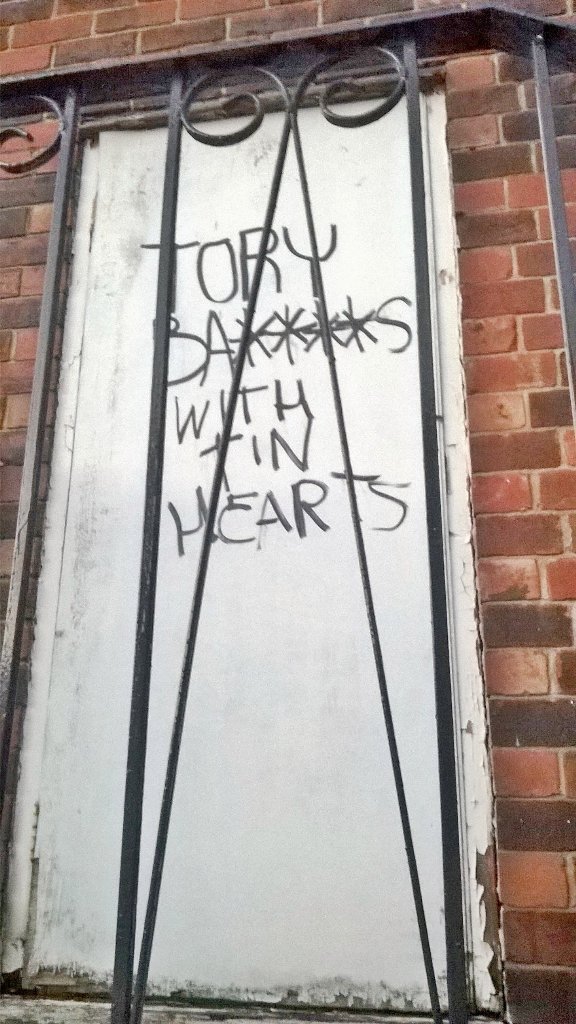 TORY
BA****S
WITH
TIN
HEARTS